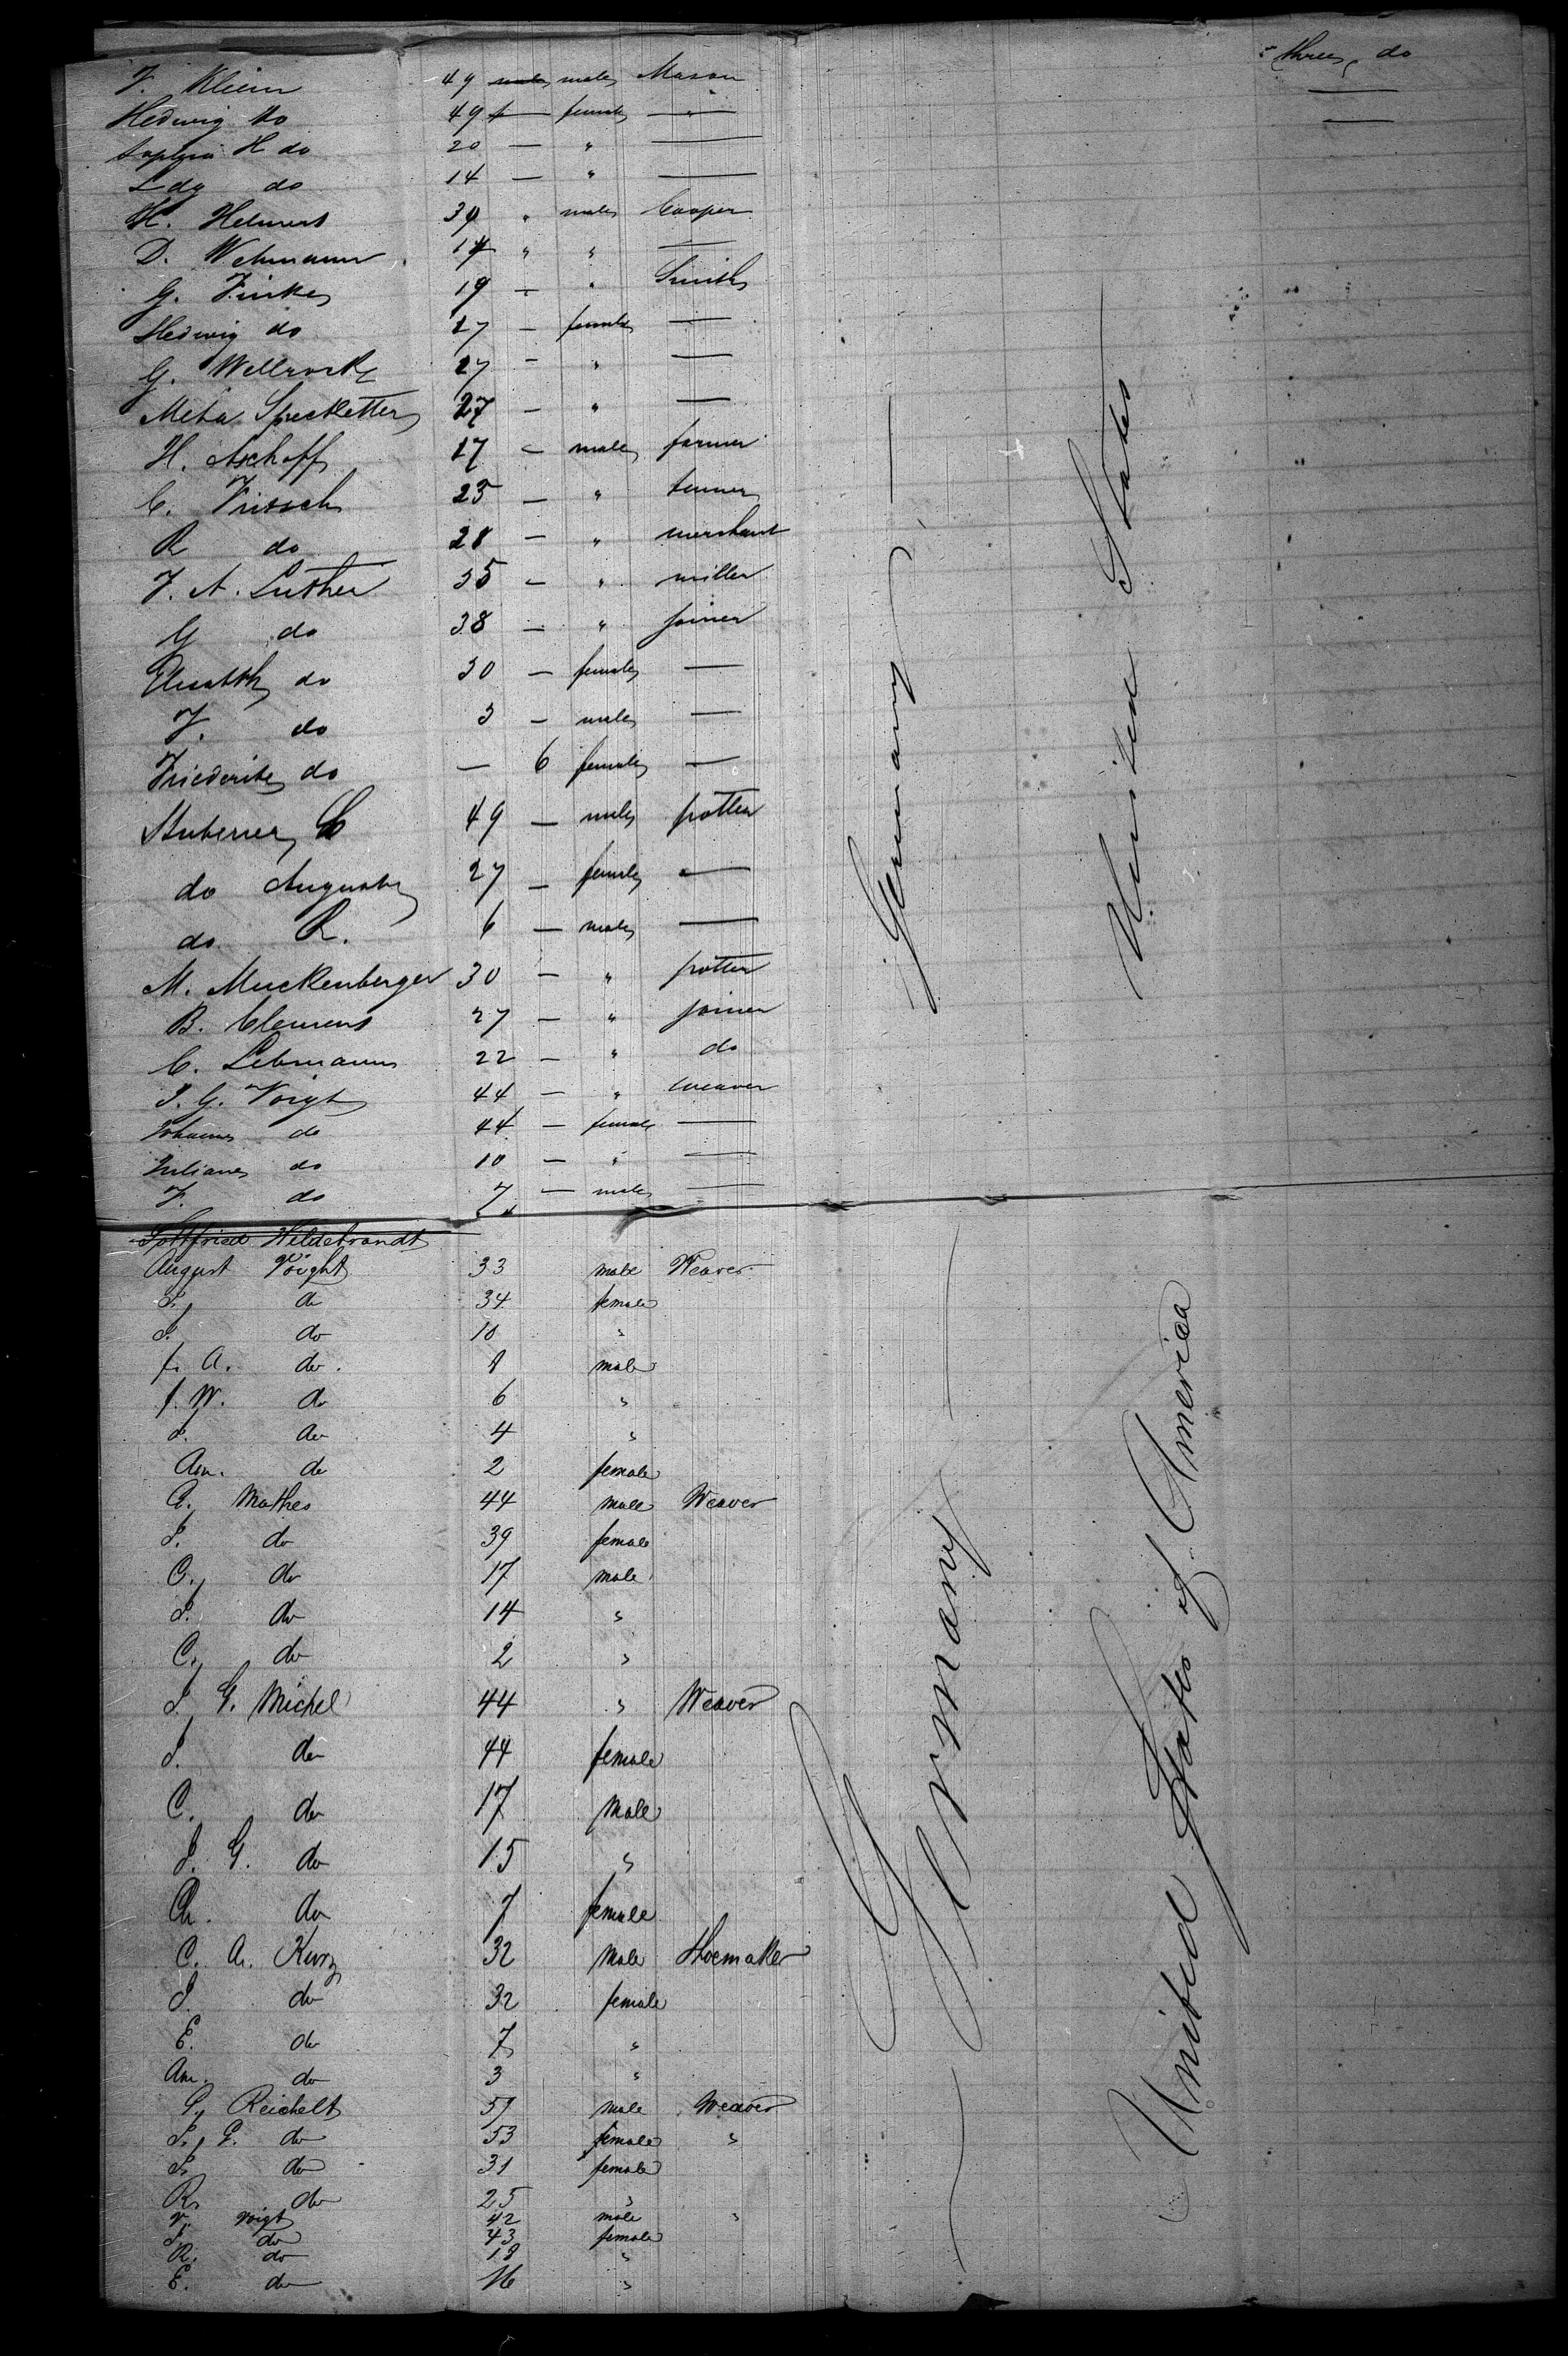 three do
F. Klein 49 male Mason
Hedwig do 49 female "
H do 20 — " —
do 14 — " —
H. Helmers 39 " male Cooper
D. Wehmann 14 " " —
G. Finke 19 — " Smith
Hedwig do 27 — female —
G. Wellrock 27 — " —
Meta Specketter 27 — " —
H. Aschoff 17 — male farmer
C. Fritsch 25 — "
R do 28 — " merchant
F. A. Luther 35 — " miller
G do 38 — " joiner
Elisabeth do 30 — female —
F. do 3 — male —
Friederike do — 6 female —
Stuberner, C 49 — male potter
do Auguste 27 — female —
do R. 6 — male —
M. Muckenberger 30 — " potter
B. Clemens 27 — " joiner
C. Lehmann 22 — " do
J. G. Voigt 44 — " weaver
Johanne do 44 — female —
Juliane do 10 — " —
F. do 7 — male —
Germany
United States
Gottfried Hildebrandt
August Voight 33 male Weaver
J. do 34 female
J. do 10 "
f. A. do. 8 male
f. W. do 6 "
J. do 4 "
Am. do 2 female
G. Mathes 44 male Weaver
J. do 39 female
C. do 17 male
J. do 14 "
C. do 2 "
J. G. Michel 44 " Weaver
J. do 44 female
C. do 17 Male
J. G. do 15 "
Ch. do 7 female
C. A. Kurz 32 Male Shoemaker
J. do 32 female
E. do 7 "
Am. do 3 "
G. Reichelt 59 male Weaver
J. G. do 53 female "
J. do 31 female
R. do 25 "
V. Voigt 42 male "
J. do 43 female
R. do 18 "
E. do 16 "
Germany
United States of America